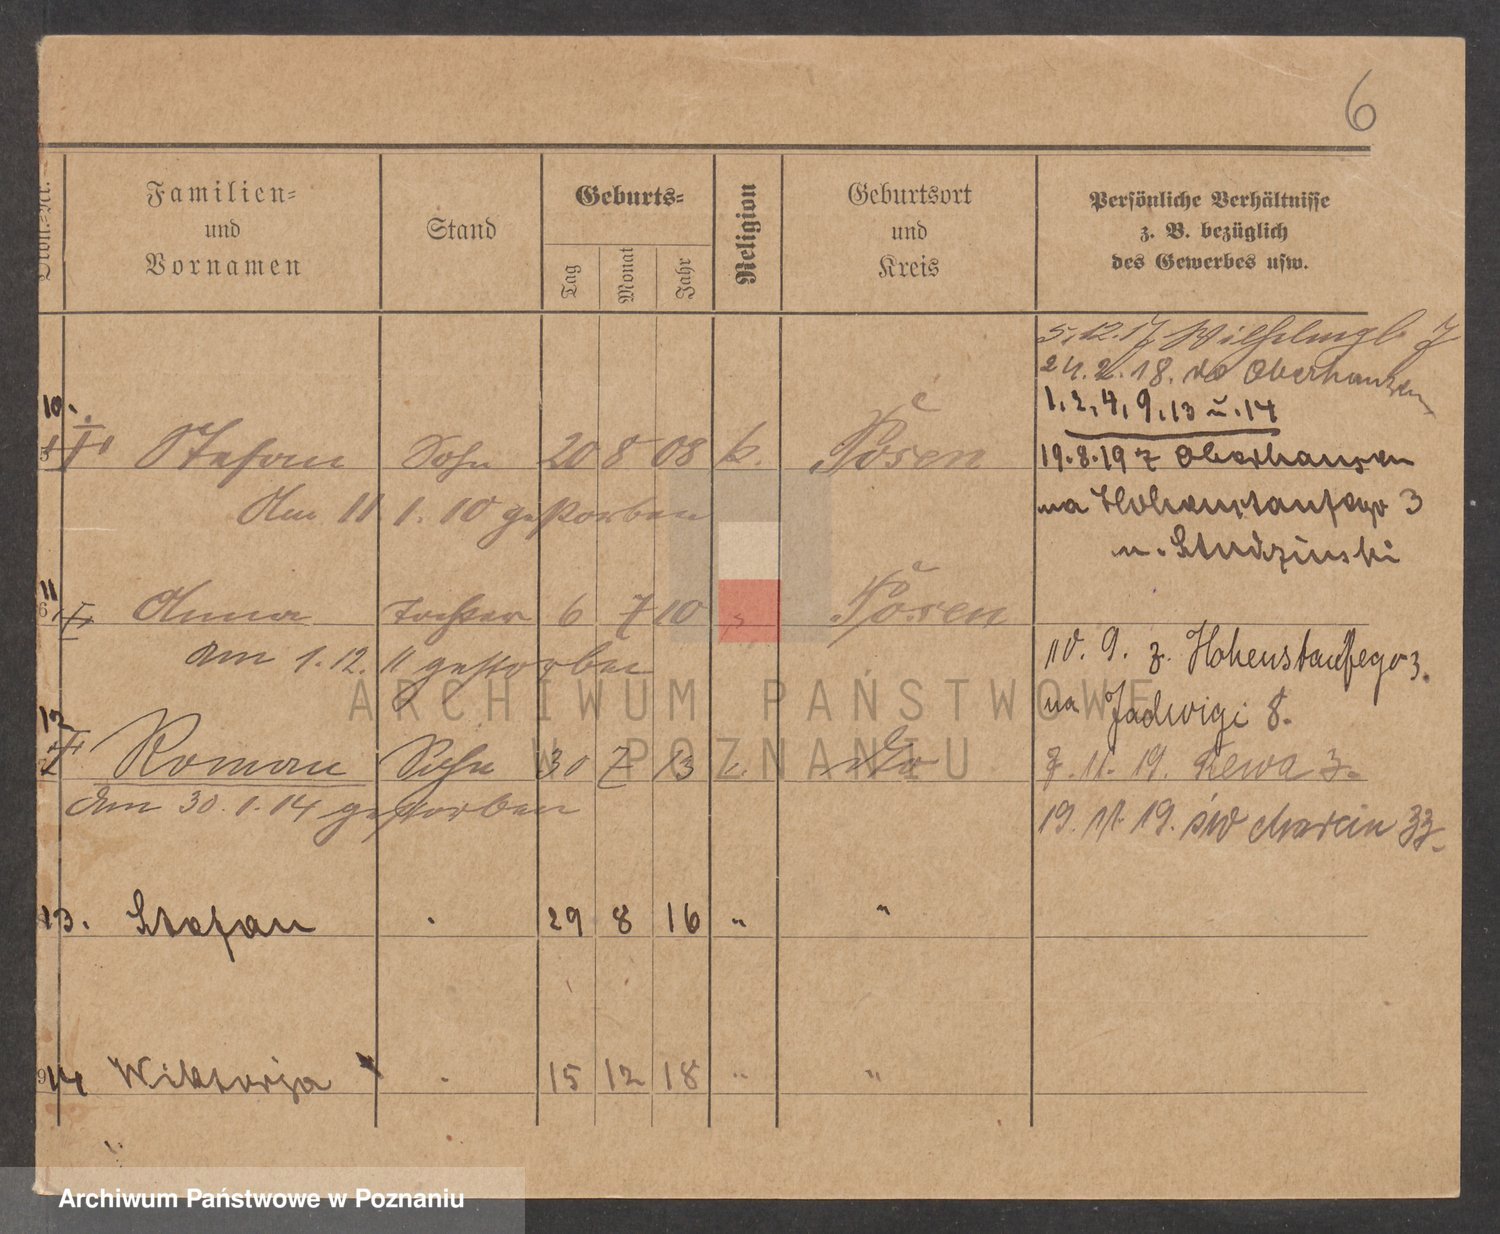 6
Familien=
und
Vornamen
Stand
Geburts=
Tag
Monat
Jahr
Religion
Geburtsort
und
Kreis
Persönliche Verhältnisse
z. B. bezüglich
des Gewerbes usw.
5.12.17
24.2.18. Oberhausen
1, 2, 4, 9, 13 u. 14
10. Stefan Sohn 20 8 08 k. Posen
19.8.19 z Oberhausen
Am 11 1. 10 gestorben
na Hohenstaufego 3
u. Studzinski
11 Anna Tochter 6 7 10 " Posen
am 1.12. 11 gestorben
9. z. Hohenstaufego 3.
na Jadwigi 8.
12 Roman Sohn 30 7 13 k. do
7.11.19. 3.
am 30.1.14 gestorben
19. 11. 19. św Marcin 33.
13. Stefan 29 8 16 " "
14 Wiktorja 15 12 18 " "
ARCHIWUM PAŃSTWOWE
W POZNANIU
Archiwum Państwowe w Poznaniu